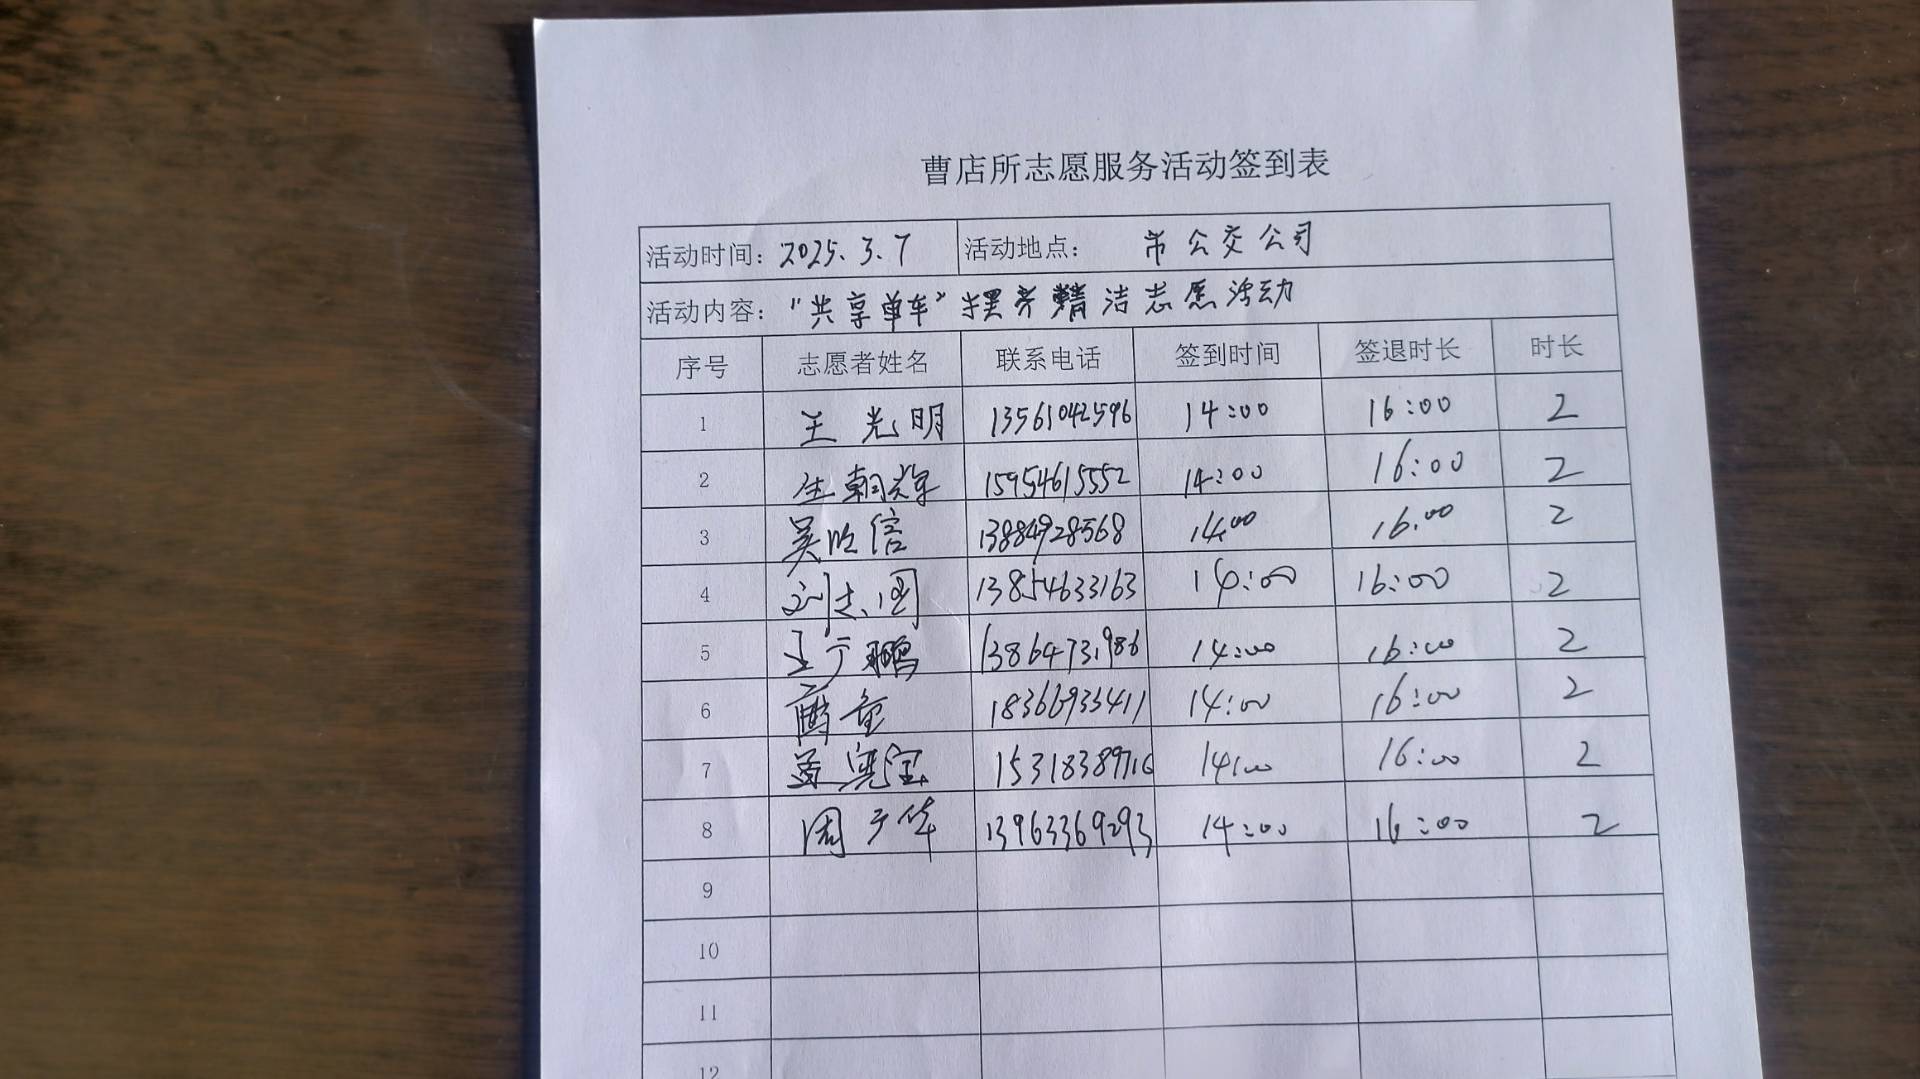 曹店所志愿服务活动签到表
活动时间：2025.3.7 活动地点： 市公交公司
活动内容：“共享单车”摆齐精洁志愿活动
序号 志愿者姓名 联系电话 签到时间 签退时长 时长
1 王光明 13561042596 14:00 16:00 2
2 生朝辉 15954615552 14:00 16:00 2
3 吴 信 13884928568 14:00 16:00 2
4 刘志国 13854633163 14:00 16:00 2
5 王广鹏 13864731986 14:00 16:00 2
6 18366933411 14:00 16:00 2
7 15318389716 14:00 16:00 2
8 周广华 13963369293 14:00 16:00 2
9
10
11
12